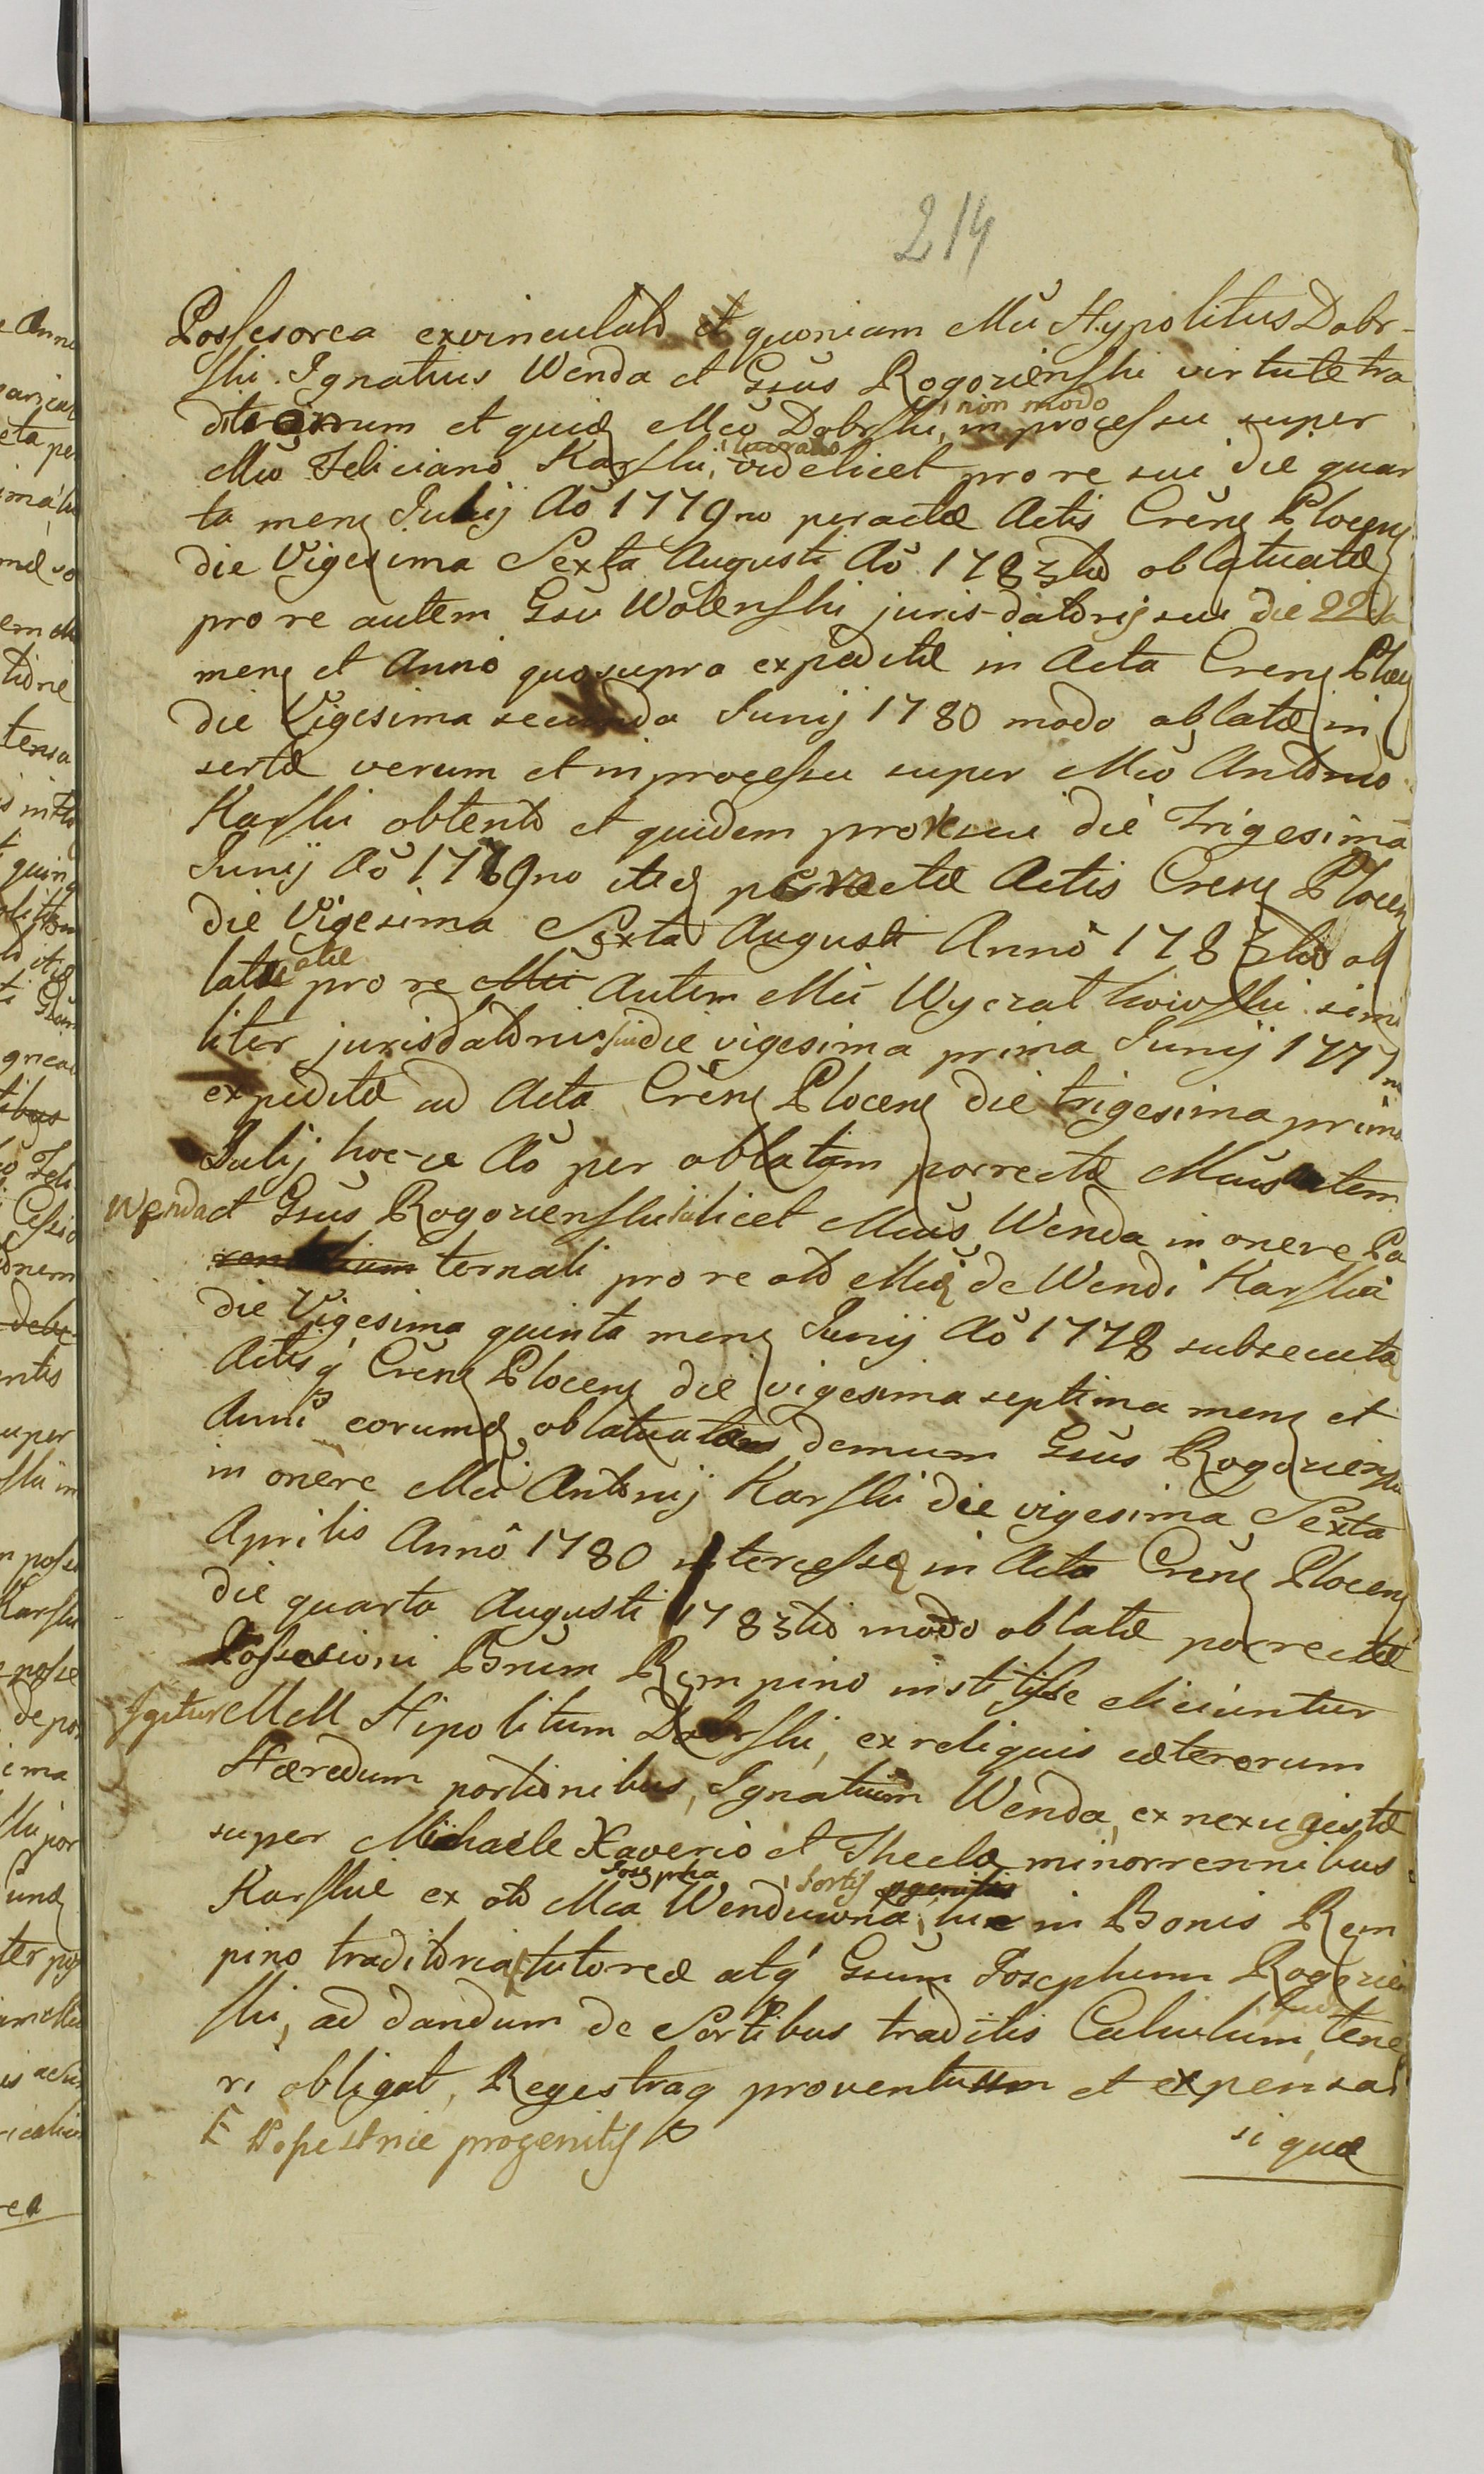 214
Possesorea exvinculato et quoniam Mu Hypolitus Dobr-
ski Ignatius Wenda et Gsus Rogozienski virtute tra
ditionum et quid Mco Dobrski, non modo in processu super
Mco Feliciano Karski, lucrato videlicet pro re sui die quar
ta mens Julij Ao 1779no peractae Actis Crens Plocens
die Vigesima Sexta Augusti Ao 1783tio oblatuatae
pro re autem Gsu Wolenski juris-datorij sui die 22da
mens et Anno quo supra expeditae in Acta Crens Plocens
die Vigesima secunda Junij 1780 modo oblatae in
sertae verum et in processu super Mco Antonio
Karski obtento et quidem pro re sui die Trigesima
Junij Ao 1779no itid peractae Actis Crens Plocens
die Vigesima Sexta Augusti Anno 1783tio ob
latae pro re Mci Autem Mci Wyczałkowski simi
liter jurisdatorij sui die vigesima prima Junij 1777mo
expeditae ad Acta Crens Plocens die trigesima prima
Julij hoc-ce Ao per oblatam porrectae Mcus autem
Wenda et Gsus Rogozienski licet Mcus Wenda in onere Pa
ternali pro re olo Mcae de Wendi Karska
die Vigesima quinta mens Junij Ao 1778 subsecuta
Actisq Crens Plocens die vigesima septima mens et
Anni eorumd oblatuata demum Gsus Rogozienski
in onere Mci Antonij Karski die vigesima Sexta
Aprilis Anno 1780 intercessae in Acta Crens Plocens
die quarta Augusti 1783tio modo oblatae porrectae
Possesioni Bnum Rempino institisse eliciuntur
Igitur MM Hipolitum Dobrski, ex reliquis caeterorum
Haeredum portionibus, Ignatium Wenda ex nexu gestae
super Michaele Xaverio et Thecla minorrennibus
Karskie ex olo Mca Josepha Wendzianna, sortis in Bonis Rem
pino traditoria tutorea atq Gsum Josephum Rogozien
ski, ad dandum de Sortibus traditis Calculum, tene
ri obligat, Regestraq proventuum et expensar
progenitis
si quae